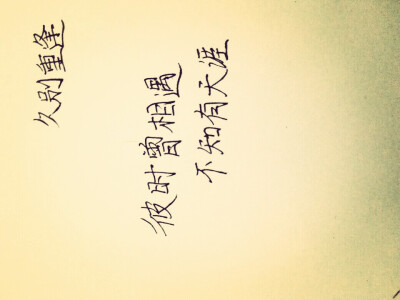 久别重逢
彼时曾相遇
不知有天涯